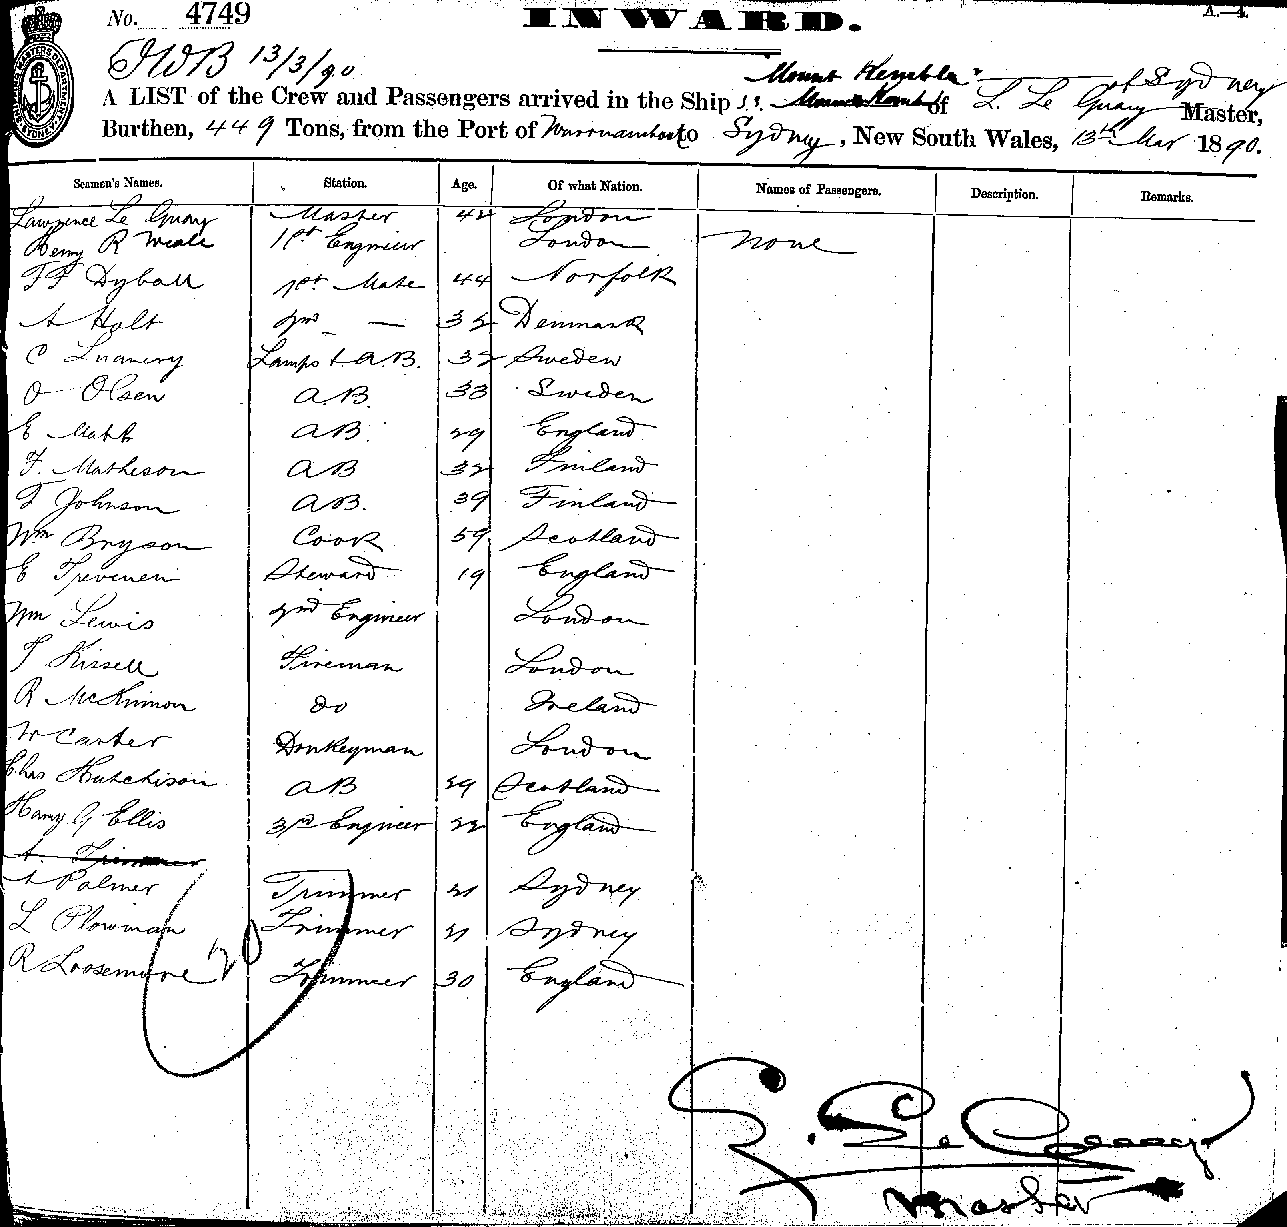 No. 4749 INWARD. A.—4.
JWB 13/3/90
"Mount Kembla" of Sydney
A LIST of the Crew and Passengers arrived in the Ship s.s. of L. Le Quay Master,
Burthen, 449 Tons, from the Port of Warrnambool to Sydney, New South Wales, 13th Mar 1890.
Seamen's Names. Station. Age. Of what Nation. Names of Passengers. Description. Remarks.
Lawrence Le Quay Master 42 London
Henry R Weale 1st Engineer London None
F F Dyball 1st Mate 44 Norfolk
A Holt 2nd — 32 Denmark
C Lamps & A.B. 32 Sweden
O Olsen A.B. 33 Sweden
E Mabb A.B. 29 England
F. Matheson A B 32 Finland
F Johnson A B. 39 Finland
Wm Bryson Cook 59 Scotland
E Trevenen Steward 19 England
Wm Lewis 2nd Engineer London
T Kissell Fireman London
R McKinnon do Ireland
W Carter Donkeyman London
Chas Hutchison A B 29 Scotland
Harry G Ellis 3rd Engineer 22 England
A. Trimmer
A Palmer Trimmer 21 Sydney
L Plowman Trimmer 21 Sydney
R Loosemore Trimmer 30 England
20
L. Le Quay
Master